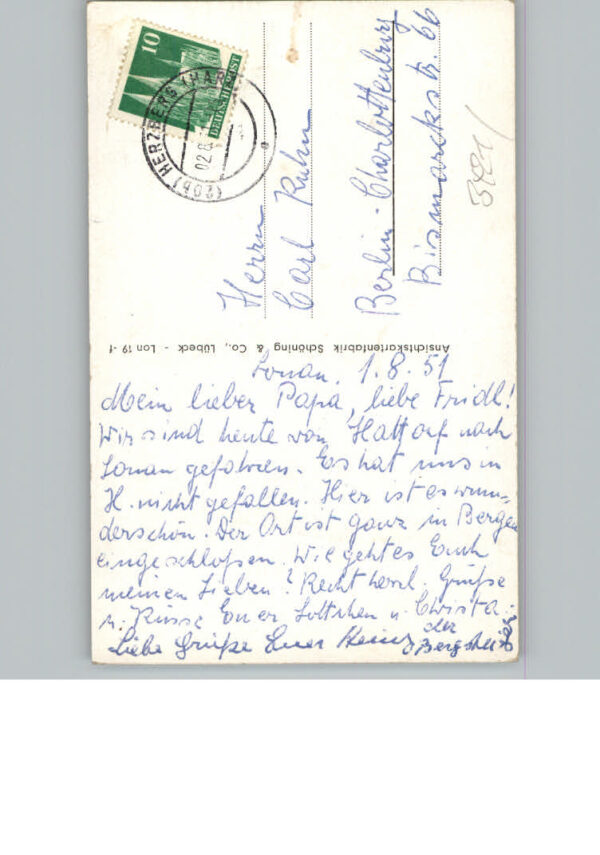 10
DEUTSCHE POST
(20b) HERZBERG (HARZ)
02.8.
a
Herrn
Carl Kuhn
Berlin-Charlottenburg
Bismarckstr. 66
Ansichtskartenfabrik Schöning & Co., Lübeck - Lon 19 -f
Lonau, 1.8.51
Mein lieber Papa, liebe Fridl!
Wir sind heute von Hattorf nach
Lonau gefahren. Es hat uns in
H. nicht gefallen. Hier ist es wun-
derschön. Der Ort ist ganz in Bergen
eingeschloßen. Wie geht es Euch
meinen Lieben? Recht herzl. Grüße
u. Küsse Euer Lottchen u. Christa.
Liebe Grüße Euer Heinz der